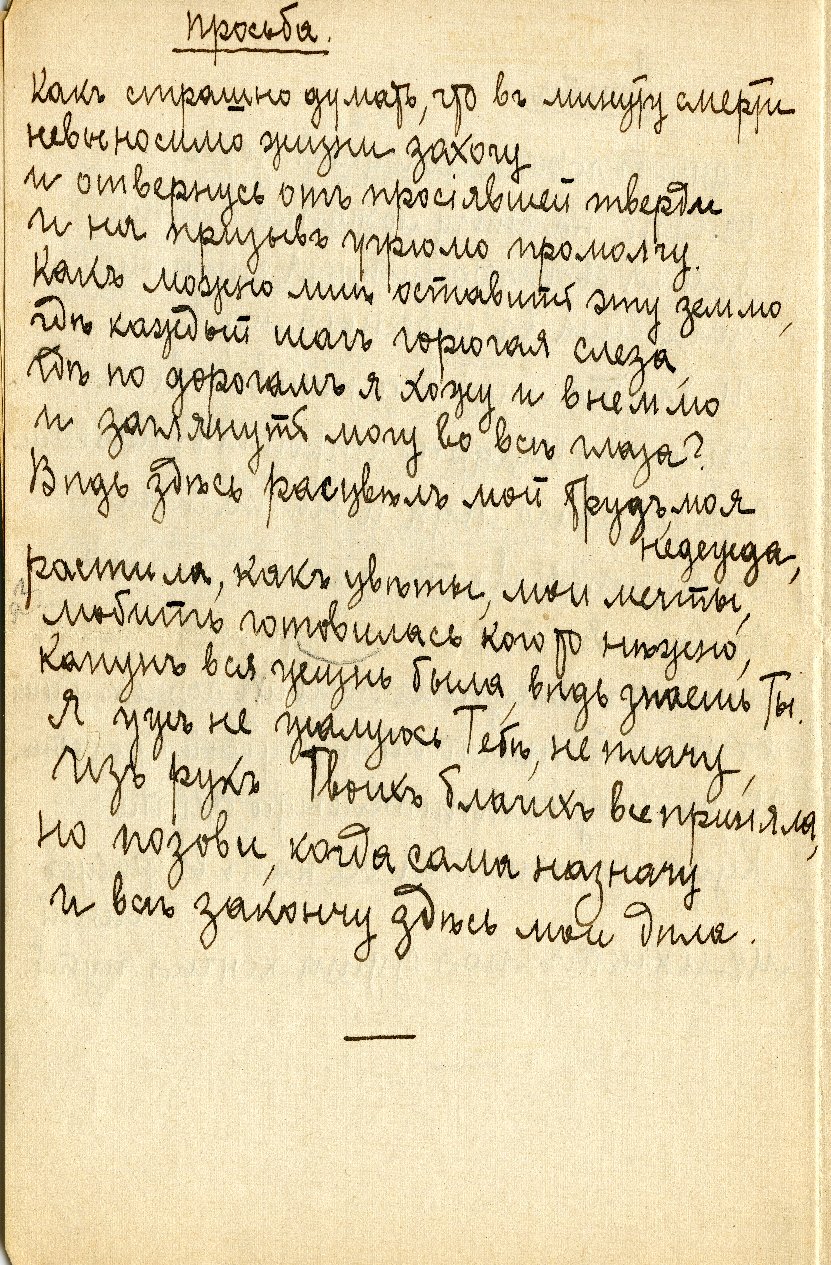 Просьба.
Какъ страшно думать, что въ минуту смерти
невыносимо жизни захочу
и отвернусь отъ просіявшей тверди
и на призывъ угрюмо промолчу.
Какъ можно мнѣ оставить эту землю,
гдѣ каждый шагъ горючая слеза
гдѣ по дорогамъ я хожу и внемлю
и заглянуть могу во всѣ глаза?
Вѣдь здѣсь расцвѣлъ мой трудъ, моя
надежда,
растила, какъ цвѣты, мои мечты,
любить готовилась кого то нѣжно,
канунъ вся жизнь была, вѣдь знаешь Ты.
Я ужъ не жалуюсь Тебѣ, не плачу,
Изъ рукъ Твоихъ благихъ все приняла,
но позови, когда сама назначу
и всѣ закончу здѣсь мои дѣла.